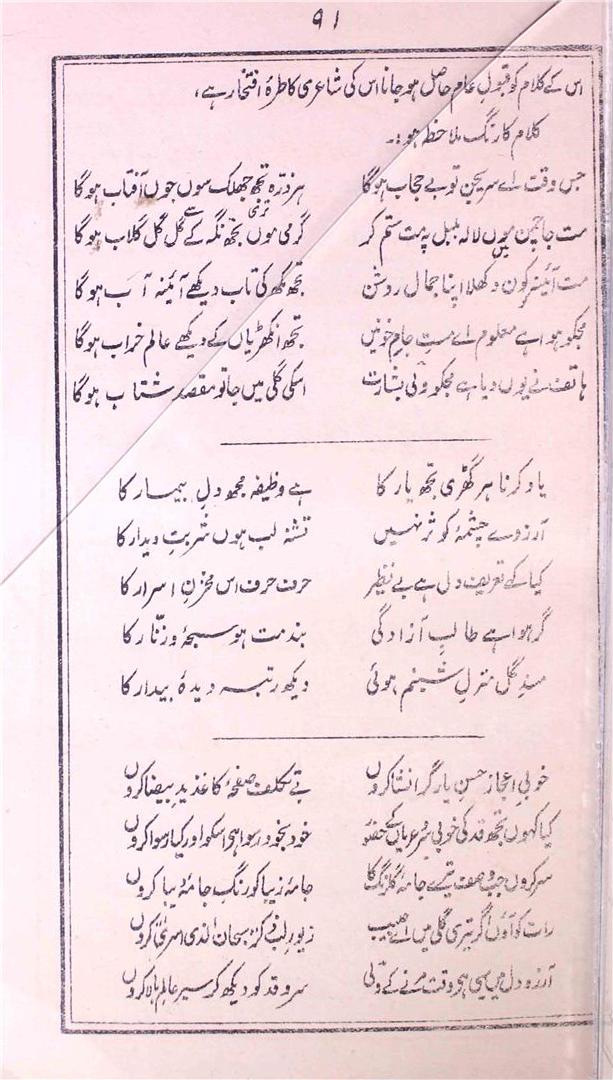 ۹۱
اس کے کلام کو قبولِ عام حاصل ہو جانا اس کی شاعری کا طرۂ افتخار ہے،
کلام کا رنگ ملاحظہ ہو:۔
جس وقت اے سریجن تو بے حجاب ہوگا ہر ذرّہ تجھ جھلک سوں جوں آفتاب ہوگا
مت جا چمن موں لالہ بلبل پہ مت ستم کر گرمی موں تجھ نگہ کے گل گل گلاب ہوگا
مت آئینہ کون دکھلا اپنا جمال روشن تجھ مکھ کی تاب دیکھے آئینہ آب ہوگا
مجکو ہوا ہے معلوم اے مستِ جامِ خونیں تجھ انکھڑیاں کے دیکھے عالم خراب ہوگا
ہاتف نے یوں دیا ہے مجکو ولی بشارت اسکی گلی میں جا تو مقصد شتاب ہوگا
یاد کرنا ہر گھڑی تجھ یار کا ہے وظیفہ مجھ دلِ بیمار کا
آرزوے چشمۂ کوثر نہیں تشنہ لب ہوں شربتِ دیدار کا
کیا کہے تعریف دل ہے بے نظیر حرف حرف اس مخزنِ اسرار کا
گر ہوا ہے طالبِ آزادگی بند مت ہو سبحۂ و زنّار کا
مسندِ گل منزلِ شبنم ہوئی دیکھ رتبہ دیدۂ بیدار کا
خوبیِ اعجازِ حسنِ یار گر انشا کروں بے تکلف صفحۂ کاغذ یدِ بیضا کروں
کیا کہوں تجھ قد کی خوبی سروِ عریاں کے حضور خود بخود رسوا ہی اسکو اور کیا رسوا کروں
سر کروں جب وصف تیرے جامۂ گلرنگ کا جامۂ زیبا کو رنگ جامۂ دیبا کروں
رات کو آؤں اگر تیری گلی میں اے حبیب زیورِ لب ذکر سبحان الذی اسریٰ کروں
آرزو دل میں یہی ہی وقت مرنے کے ولی سرو قد کو دیکھ کر سیرِ عالمِ بالا کروں